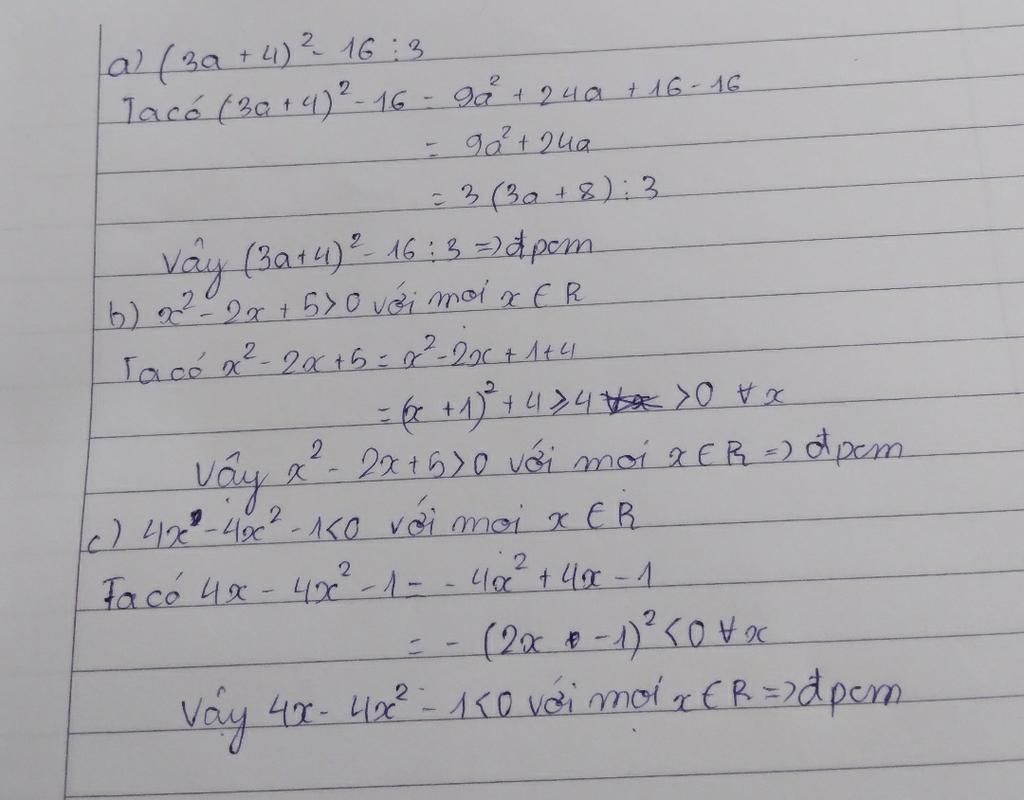 a) (3a + 4)² - 16 ⋮ 3
Ta có (3a + 4)² - 16 = 9a² + 24a + 16 - 16
= 9a² + 24a
= 3 (3a + 8) ⋮ 3
Vậy (3a+4)² - 16 ⋮ 3 => đpcm
b) x² - 2x + 5 > 0 với mọi x ∈ R
Ta có x² - 2x + 5 = x² - 2x + 1 + 4
= (x + 1)² + 4 ⩾ 4 > 0 ∀ x
Vậy x² - 2x + 5 > 0 với mọi x ∈ R => đpcm
c) 4x - 4x² - 1 < 0 với mọi x ∈ R
Ta có 4x - 4x² - 1 = - 4x² + 4x - 1
= - (2x - 1)² < 0 ∀ x
Vậy 4x - 4x² - 1 < 0 với mọi x ∈ R => đpcm